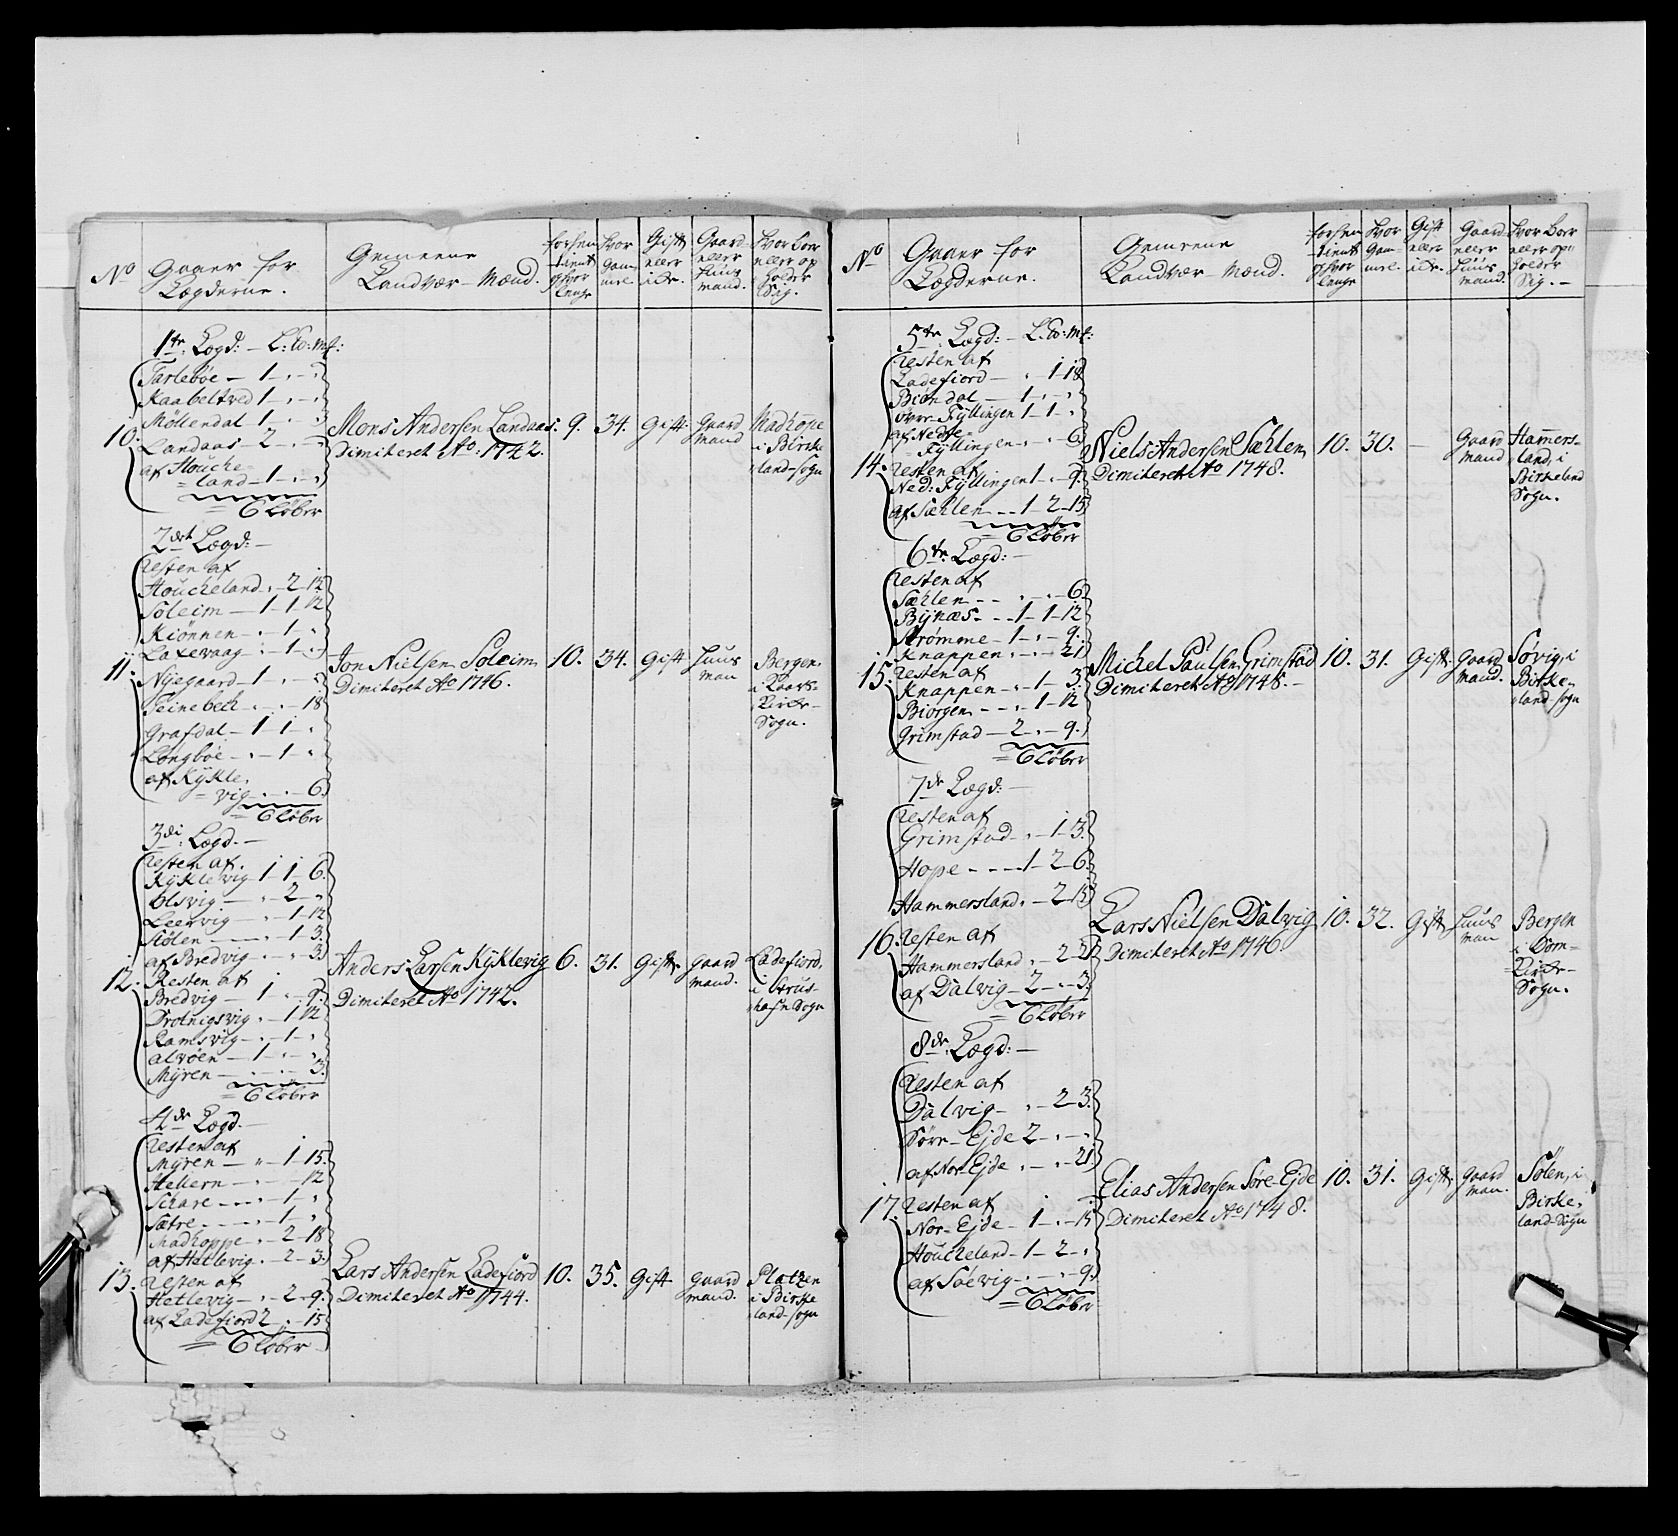 No Gaaer for Lægderne. Gemeene Landvær-Mænd. fortient hvor lenge hvor gammel. Gift eller ei. Gaard eller Huus mand. hvor boer eller opholder Sig.
1te Lægd: — L: Ƿ: mk:
Tarlebøe — 1 — " — "
Kaabeltved 1 — " — "
Møllendal 1 — " — "
10. Landaas — 2 — " — "
af Houche=
= land — 1 — " — "
= 6 Løber
Mons Andersen Landaas. 9. 34. Gift. Gaard mand Madhope i Birkeland-sogn
Dimiteret Ao: 1742.
2den Lægd: —
Resten af
Houcheland " — 2 — 12
Soleim — 1 — 1 — 12
Kiønnen — " — 1 — "
Laxevaag — " — 1 — "
11. Nyegaard — 1 — " — "
Steinebech — " — " — 18
Grafdal — 1 — 1 — "
Longbøe — " — 1 — "
af Kykle,
= vig — " — " — 6
= 6 Løber
Jon Nielsen Soleim 10. 34. Gift Huus man Bergen, i Kaars-Kirke-Sogn.
Dimiteret Ao 1746.
3die Lægd. —
Resten af.
Kyklevig 1 — 1 — 6.
Olsvig — " — 2 — "
Leervig — " — 1 — 12
Stølen — " — 1 — 3.
af Bredvig — " — " — 3
12. Resten af
Bredvig — 1 — " — 9.
Drotnigsvig " — 1 — 12
Ramsvig — " — 1 — "
alvøen — 1 — " — "
Myren — " — " — 3.
= 6 Løber
Anders Larsen Kyklevig 6. 31. Gift. gaard mand. Ladefiord,
Dimiteret Ao 1742.
4de Lægd. —
Resten af
Myren — " — 1 — 15.
Hehern — " — " — 12
Schare — " — 1 — "
Sætre — " — 1 — "
Madhoppe " — 2 — 18
af Hetlevig " — 2 — 3.
13. Resten af
Hetlevig — " — 2 — 9.
af Ladefiord 2 " — 15
= 6 Løber
Lars Andersen Ladefiord 10. 35. Gift gaard mand. Platzen i Birkeland-sogn
Dimiteret Ao 1744.
No Gaaer for Lægderne. Gemeene Landvær-Mænd. fortient hvor lenge hvor gammel. Gift eller ei. Gaard eller Huus mand. hvor boer eller opholder Sig. —
5te Lægd: — L: Ƿ: mk:
Resten af
Ladefiord — " — 1 — 18
Biøndal — 1 — " — "
over Fyllingen 1 — 1 — "
af Nedre=
= Fyllingen " — " — 6
14. Resten af
Ned: Fyllingen 1 — " — 9.
af Sæhlen — 1 — 2 — 15
= 6 Løber
Niels Andersen Sæhlen 10. 30. — Gaard mand Hammersland, i Birkeland Sogn.
Dimiteret Ao 1748.
6te Lægd: —
Resten af
Sæhlen — — " — " — 6.
Bynæs — 1 — 1 — 12
Strømme — 1 — " — 9.
Knappen " — " — 21
15. Resten af
Knappen — " — 1 — 3.
Biørgen — " — 1 — 12
Grimstad — 2 — " — 9.
= 6 Løber
Michel Paulsen Grimstad 10. 31. Gift. Gaard mand. Søvig, i Birkeland-sogn
Dimiteret Ao 1748. —
7de Lægd: —
Resten af
Grimstad — " — 1 — 3.
Hope — — 1 — 2 — 6.
Hammersland. — 2 — 15
16. Resten af
Hammersland. — 2 — 21
af Dalvig — 2 — " — 3.
= 6 Løber
Lars Nielsen Dalvig 10. 32. Gift Huus man Bergen i Dom-Kirke-Sogn.
Dimiteret Ao 1746.
8de Lægd: —
Resten af
Dalvig — " — 2 — 3.
Søre-Ejde 2 — " — "
af Nor Ejde " — " — 21
17. Resten af
Nor-Ejde — 1 — " — 15
Houcheland — 1 — 2 — "
af Søevig — " — " — 9.
= 6 Løber
Elias Andersen Søre-Ejde 10. 31. Gift. Gaard man. Sølen, i Birkeland-Sogn
Dimiteret Ao 1748.